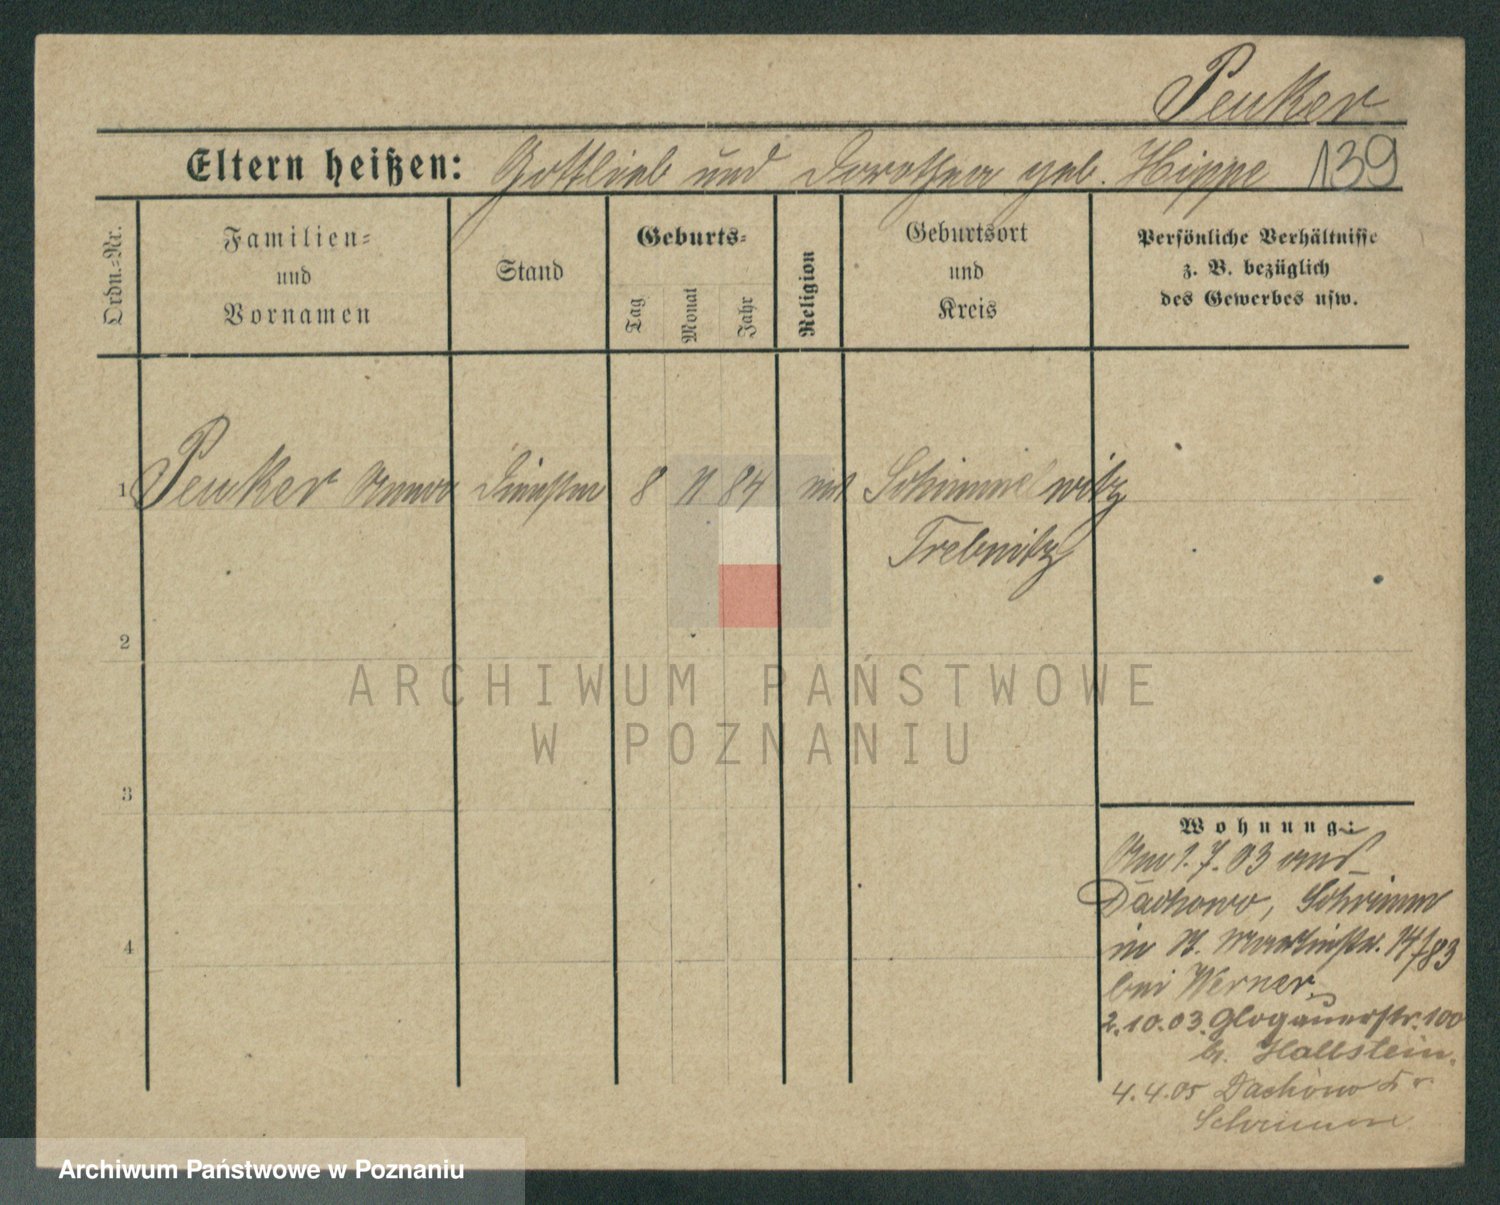 Peuker
Eltern heißen: Gottlieb und Dorothea geb. Hippe 139
Ordn.-Nr.
Familien-
und
Vornamen
Stand
Geburts-
Tag
Monat
Jahr
Religion
Geburtsort
und
Kreis
Persönliche Verhältnisse
z. B. bezüglich
des Gewerbes usw.
1 Peuker Anna 8 11 84 Schimmelwitz
Trebnitz
2
3
4
Wohnung:
Am 1.7.03 aus
Dachowo, Schrimm
in St. Martinstr.
bei Werner
2.10.03. Glogauerstr. 100
b. Hallstein.
4.4.05 Dachowo Kr.
Schrimm
ARCHIWUM PAŃSTWOWE
W POZNANIU
Archiwum Państwowe w Poznaniu